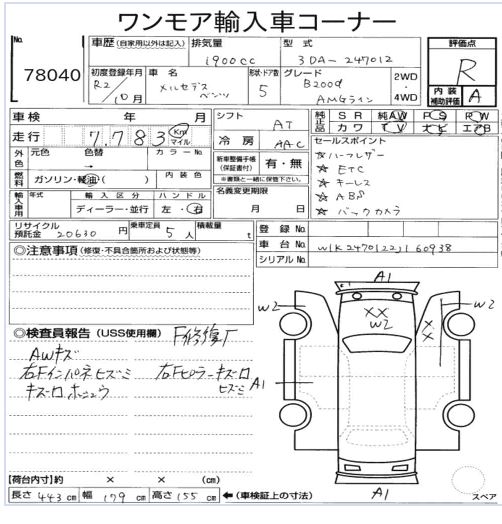 ワンモア輸入車コーナー
No.
78040
車歴 (自家用以外は記入)
排気量
1900cc
型式
3DA-247012
評価点
R
内装
補助評価 A
初度登録年月
R2/10月
車名
メルセデス ベンツ
形状・ドア数
5
グレード
B200d
AMGライン
2WD
・
4WD
車検 年 月
走行 7,783 Km マイル
外色
元色
色替
→
カラーNo.
燃料
ガソリン・軽油・( )
内装色
輸入車用
年式
輸入区分
ディーラー・並行
ハンドル
左・右
リサイクル預託金 20630 円
乗車定員 5人
積載量 t
シフト AT
冷房 AAC
新車整備手帳(保証書付)
有・無
※書類と一緒に保管下さい。
名義変更期限
月 日
純正品
SR 純AW PS PW
カワ TV ナビ エアB
セールスポイント
☆ハーフレザー
☆ETC
☆キーレス
☆ABS
☆バックカメラ
登録No.
車台No. W1K2470122J160938
シリアルNo.
◎注意事項 (修復・不具合箇所および状態等)
◎検査員報告 (USS使用欄)
F修復ナ
AWキズ
右Fインパネヒズミ
右Fピラーキズロ
ヒズミ
キズロ ホシュウ
A1
W2
XX
W2
W2
XX
A1
A1
スペア
【荷台内寸】約 × × (cm)
長さ 443 cm 幅 179 cm 高さ 155 cm ←(車検証上の寸法)